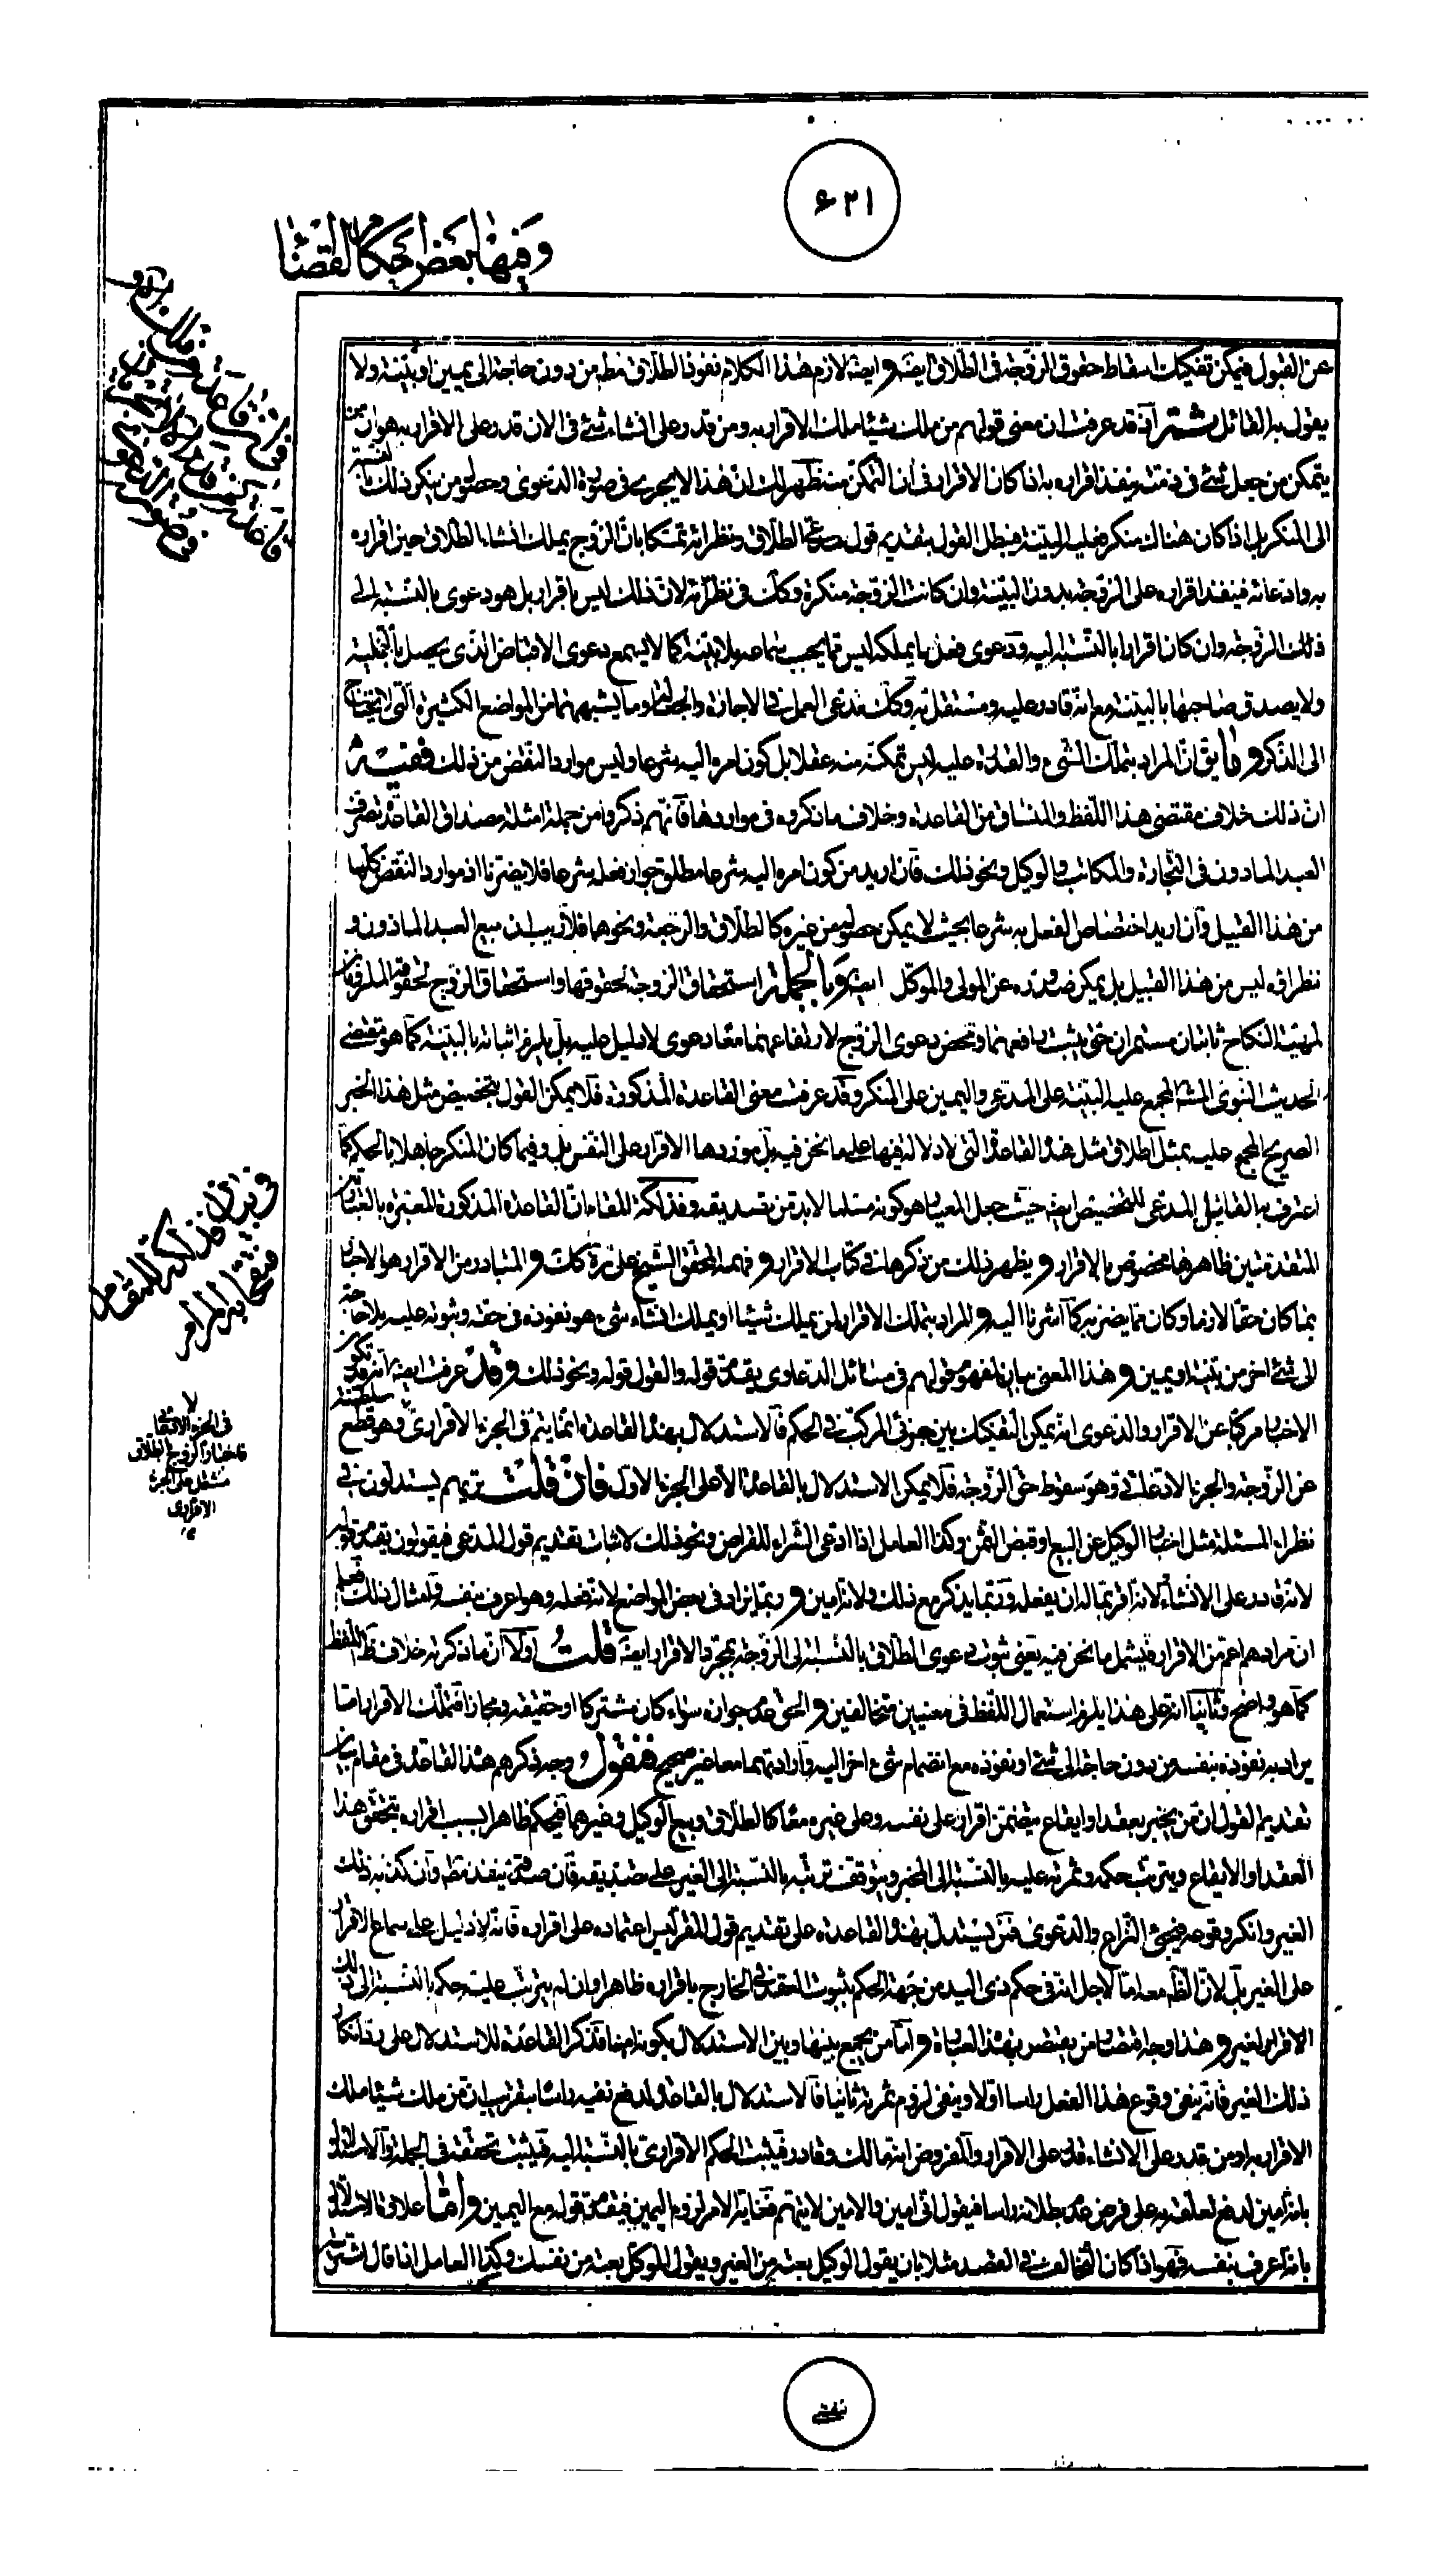 ٦٢١
وفيها بعض احكام القضاء
عن القبول فيمكن تفكيك اسقاط حقوق الزوجة فى الطلاق ايضه وايضه لازم هذا الكلام نفوذ الطلاق مطه من دون حاجة الى يمين او بينة ولا
يقول به القائل ثم انه قد عرفت ان معنى قولهم من ملك شيئا ملك الاقرار به ومن قدر على انشاء شئ فى الان قدر على الاقرار به هوان من
يتمكن من جعل شئ فى ذمته ينفذ اقراره به اذا كان الاقرار فى ان التمكن منه ظهر لك ان هذا لا يجرى فى صورة الدعوى وحصول من ينكر ذلك بالنسبة
الى المنكر بل اذا كان هناك منكر فعليه البينة فيبطل القول بتقديم قول مدعى الطلاق ونظرائه تمسكا بان الزوج يملك انشاء الطلاق حين اقراره
به وادعائه فينفذ اقراره على الزوجة بدون البينة وان كانت الزوجة منكرة وكك فى نظرائه لان ذلك ليس باقرار بل هو دعوى بالنسبة الى
ذلك الزوجة وان كان اقرارا بالنسبة اليه ودعوى فعل ما يملكه ليس مما يجب سماعه بلا بينة كما لا يسمع دعوى الاقباض الذى يحصل بالتخلية
ولا يصدق صاحبها بالبينة مع انه قادر عليه ومستقل به وكك مدعى العمل فى الاجارة والجعالة وما يشبههما من المواضع الكثيرة التى لا يحتاج
الى الذكر وما يق ان المراد بتملك الشئ والقدرة عليه ليس تمكنه منه عقلا بل كون امره اليه شرعا وليس موارد النقض من ذلك ففيه
ان ذلك خلاف مقتضى هذا اللفظ والمنساق من القاعدة وخلاف ما ذكروه فى مواردها فانهم ذكروا من جملة امثلة مصداق القاعدة تصرف
العبد الماذون فى التجارة والمكاتب والوكيل ونحو ذلك فان اريد من كون امره اليه شرعا مطلق جواز فعله شرعا فلا يضرنا اذ موارد النقض كلها
من هذا القبيل وان اريد اختصاص الفعل به شرعا بحيث لا يمكن حصوله من غيره كالطلاق والرجعة ونحوهما فلا ريب ان بيع العبد الماذون و
نظرائه ليس من هذا القبيل بل يمكن صدوره عن المولى والموكل ايضه وبالجملة استحقاق الزوجة لحقوقها واستحقاق الزوج لحقوقه
لمهية النكاح ثابتان مستمران حتى يثبت رافعهما ومحض دعوى الزوج لارتفاعهما معا دعوى لا دليل عليه بل يلزم اثباته بالبينة كما هو مقتضى
الحديث النبوى المشه المجمع عليه البينة على المدعى واليمين على المنكر وقد عرفت معنى القاعدة المذكورة فلا يمكن القول بتخصيص مثل هذا الخبر
الصريح المجمع عليه بمثل اطلاق مثل هذه القاعدة التى لا دلالة فيها على ما نحن فيه بل موردها الاقرار على النفس بل وفيما كان المنكر جاهلا بالحكم كما
اعترف به القائل المدعى للتخصيص ايضه حيث جعل المعيار هو كونه مسلما لا بد من تصديقه وفذلكة المقام ان القاعدة المذكورة المعتبرة بالعبارتين
المتقدمتين ظاهرها مخصوص بالاقرار ويظهر ذلك من ذكرها فى كتاب الاقرار وفهمه المحقق الشيخ على ره كك والمتبادر من الاقرار هو الاخبار
بما كان حقا لازما وكان مما يضر به كما اشرنا اليه والمراد بتملك الاقرار لمن يملك شيئا او يملك انشاء شئ هو نفوذه فى حقه وثبوته عليه بلا حاجة
الى شئ اخر من بينة او يمين وهذا المعنى مباين لمفهوم قولهم فى مسائل الدعاوى يقدم قوله والقول قوله ونحو ذلك وقد عرفت ايضه انه قد يكون
الاخبار مركبا عن الاقرار والدعوى انه يمكن التفكيك بين جزئى المركب فى الحكم فالاستدلال بهذه القاعدة انما يتم فى الجزء الاقرارى وهو قطع سلطنته
عن الزوجة والجزء الادعائى وهو سقوط حق الزوجة فلا يمكن الاستدلال بالقاعدة الا على الجزء الاول فان قلت نريهم يستدلون فى
نظراء المسئلة مثل اخبار الوكيل عن البيع او قبض الثمن وكذا العامل اذا ادعى الشراء للقراض ونحو ذلك لاثبات تقديم قول المدعى فيقولون يقدم قوله
لانه قادر على الانشاء لانه اقر بما له ان يفعل وربما يذكر مع ذلك ولانه امين وربما يزاد فى بعض المواضع لانه فعله وهو اعرف بنفسه وامثال ذلك فعلم
ان مرادهم اعم من الاقرار فيشمل ما نحن فيه يعنى ثبوت دعوى الطلاق بالنسبة الى الزوجة بمجرد الاقرار ايضه قلت اولا ان ما ذكرته خلاف ظ اللفظ
كما هو واضح وثانيا انه على هذا يلزم استعمال اللفظ فى معنيين متخالفين والحق عدم جوازه سواء كان مشتركا او حقيقة ومجازا فتملك الاقرار اما
يراد به نفوذه بنفسه من دون حاجة الى شئ او نفوذه مع انضمام شئ اخر اليه وارادتهما معا غير صحيح فنقول وجه ذكرهم هذه القاعدة فى مقام بيان
تقديم القول ان من يخبر بعقد او ايقاع متضمن اقرار على نفسه وعلى غيره معا كالطلاق وبيع الوكيل وغيرهما فيحكم ظاهرا بسبب اقراره بتحقق هذا
العقد او الايقاع ويترتب حكمه وثمرته عليه بالنسبة الى المخبر ويتوقف ترتبه بالنسبة الى الغير على تصديقه فان صدقه ينفذ مطه وان كذبه ذلك
الغير وانكر وقوعه فيجئ النزاع والدعوى فمن يستدل بهذه القاعدة على تقديم قول المقر ليس اعتماده على اقراره فانه لا دليل على سماع الاقرار
على الغير بل لان الظ معه اما لاجل انه فى حكم ذى اليد من جهة الحكم بثبوت العقد فى الخارج باقراره ظاهرا وان لم يترتب عليه حكم بالنسبة الى ذلك
الاقرار لغيره وهذا وجه اقتصار من يقتصر بهذه العبارة واما من يجمع بينها وبين الاستدلال بكونه امينا فذكر القاعدة للاستدلال على رد انكار
ذلك الغير فانه ينفى وقوع هذا الفعل راسا اولا وينفى لزوم ثمرته ثانيا فالاستدلال بالقاعدة لدفع نفيه راسا بتقريب ان من ملك شيئا ملك
الاقرار به او من قدر على الانشاء قدر على الاقرار والمفروض انه مالك وقادر فيثبت الحكم الاقرارى بالنسبة اليه فيثبت تحققه فى الجملة والاستدلال
بانه امين لدفع تعلقه به على فرض عدم بطلانه راسا فيقول انى امين والامين لا يتهم فغاية الامر لزوم اليمين فيقدم قوله مع اليمين واما علاوة الاستدلال
بانه اعرف بنفسه فهو اذا كان التخالف فى القصد مثلا بان يقول الوكيل بعته من الغير ويقول الموكل بعته من نفسك وكذا العامل اذا قال اشتريت
فى بيان فذلكة للمقام
تنقحا به المرام
لا
فى الجزء الادعائى
فاخبار الزوج بالطلاق
مشتمل على الجزء
الاقرارى
لنفسى